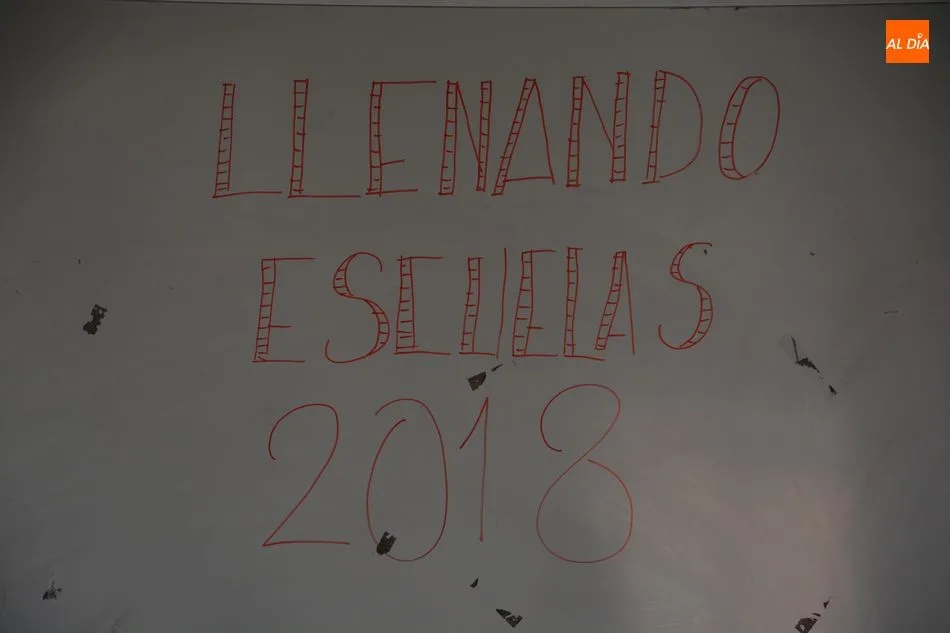 AL DÍA
LLENANDO
ESCUELAS
2018